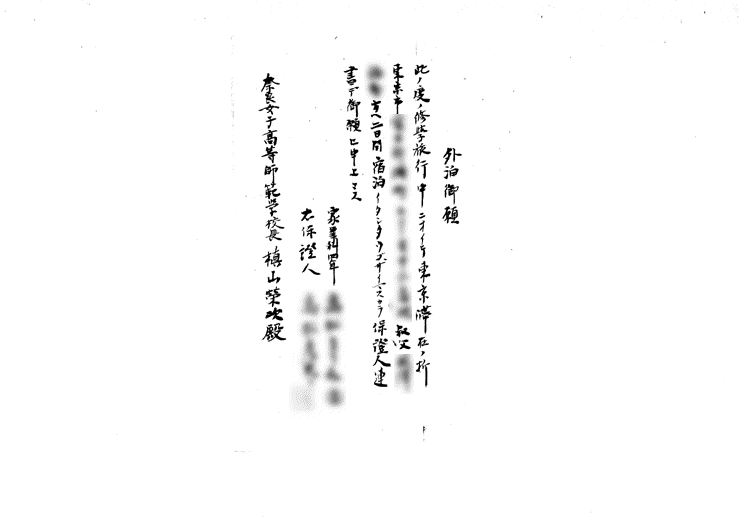 外泊御願
此ノ度ノ修學旅行中ニオイテ東京滞在ノ折
東京市 叔父
方ヘ二日間宿泊イタシタウゴザイマスカラ保證人連
書ニテ御願ヒ申上マス
家第四年
右保證人
奈良女子高等師範學校長 槇山榮次殿